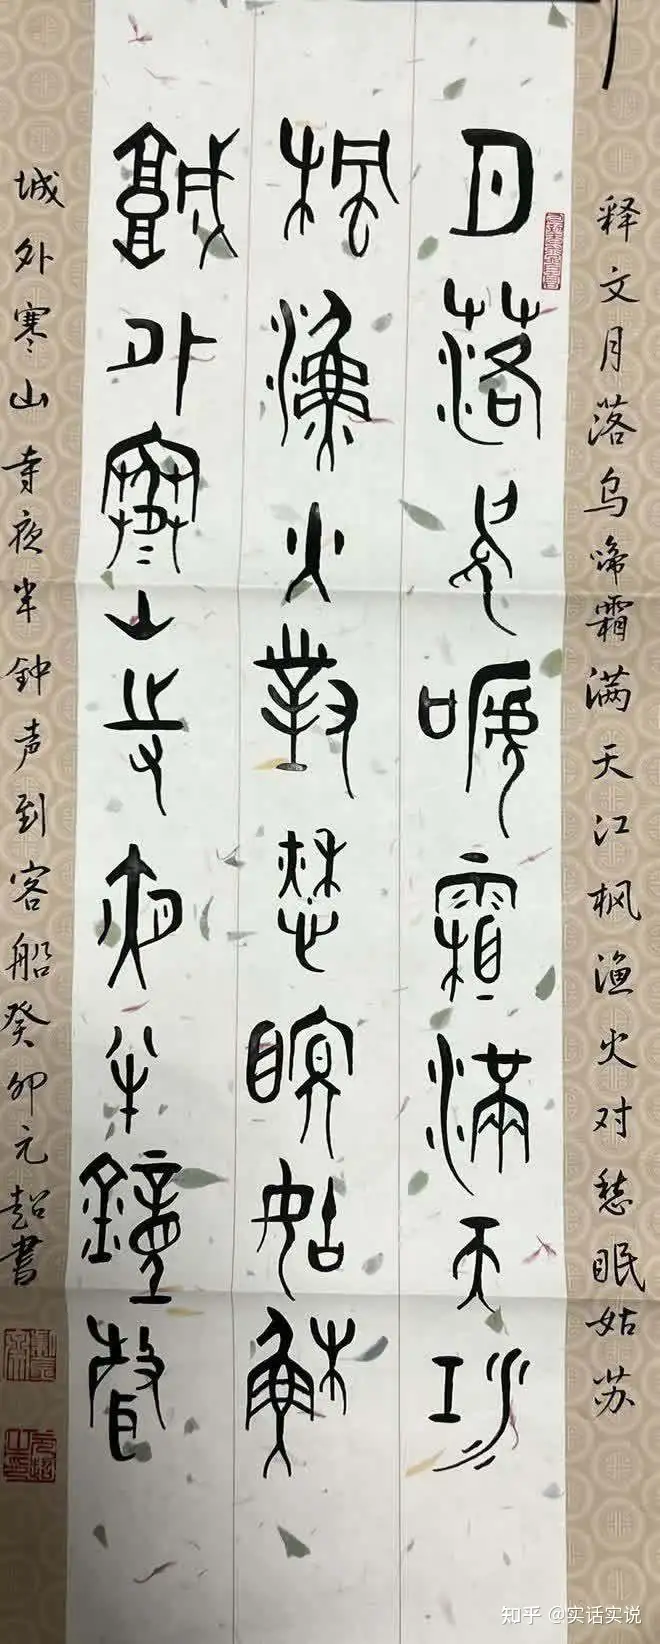 释文月落乌啼霜满天江枫渔火对愁眠姑苏
月落烏啼霜滿天江
楓漁火對愁眠姑穌
城外寒山寺夜半鐘聲
城外寒山寺夜半钟声到客船癸卯元超書
知乎 @实话实说